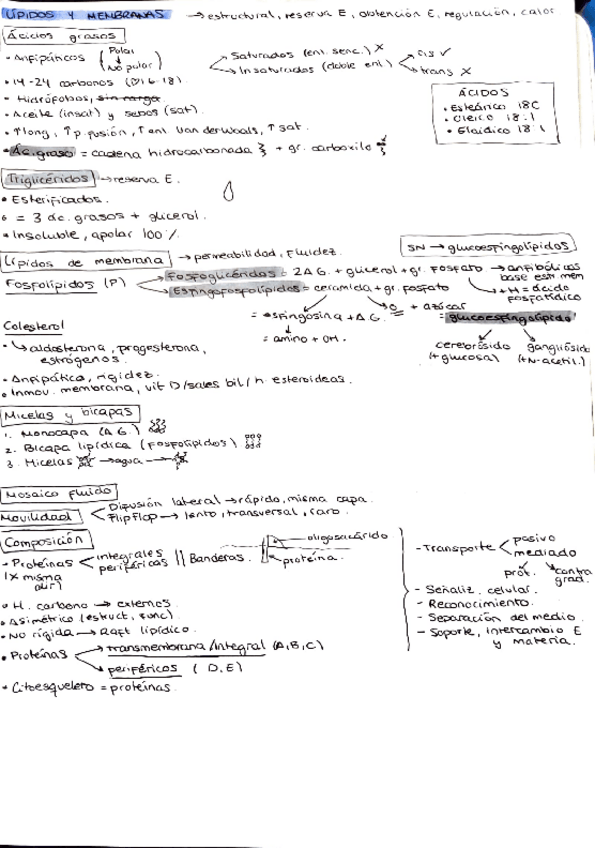 LÍPIDOS Y MEMBRANAS → estructural, reserva E, obtención E, regulación, calor
Ácidos grasos
• Anfipáticos (Polar ↓ No polar)
→ Saturados (enl. senc.) X
→ Insaturados (doble enl.)
→ cis ✓
→ trans X
• 14-24 carbonos
• Hidrófobos, sin carga
• Aceite (insat) y sebos (sat).
• ↑long, ↑p. fusión, ↑enl. Van der Waals, ↑sat.
• Ác. graso = cadena hidrocarbonada + gr. carboxilo
ÁCIDOS
• Esteárico 18C
• Oleico 18:1
• Elaídico 18:1
Triglicéridos → reserva E.
• Esterificados.
• = 3 ác. grasos + glicerol.
• Insoluble, apolar 100%.
SN → glucoesfingolípidos
Lípidos de membrana → permeabilidad, fluidez.
Fosfolípidos (P)
Fosfoglicéridos = 2 A.G. + glicerol + gr. fosfato →
+ H = ácido fosfatídico
Esfingofosfolípidos = ceramida + gr. fosfato
= esfingosina + A.G.
= amino + OH.
+ azúcar
= glucoesfingolípido
cerebrósido (+ glucosa)
gangliósido (+N-acetil.)
Colesterol
• aldosterona, progesterona, estrógenos.
• Anfipática, rigidez.
• Inmov. membrana, vit D/sales bil/h. esteroideas.
Micelas y bicapas
1. Monocapa (A.G.)
2. Bicapa lipídica (Fosfolípidos)
3. Micelas → agua →
Mosaico fluido
Movilidad
Difusión lateral → rápido, misma capa.
Flip flop → lento, transversal, raro.
Composición
• Proteínas
integrales
periféricas || Banderas.
oligosacárido
proteína.
(X misma
• H. carbono → externos
• Asimétrico (estruct, func)
• NO rígida → Raft lipídico.
• Proteínas
transmembrana/integral (A,B,C)
periféricos (D,E)
• Citoesqueleto = proteínas.
- Transporte
pasivo
mediado
prot.
contra grad.
- Señaliz. celular.
- Reconocimiento.
- Separación del medio.
- Soporte, intercambio E y materia.